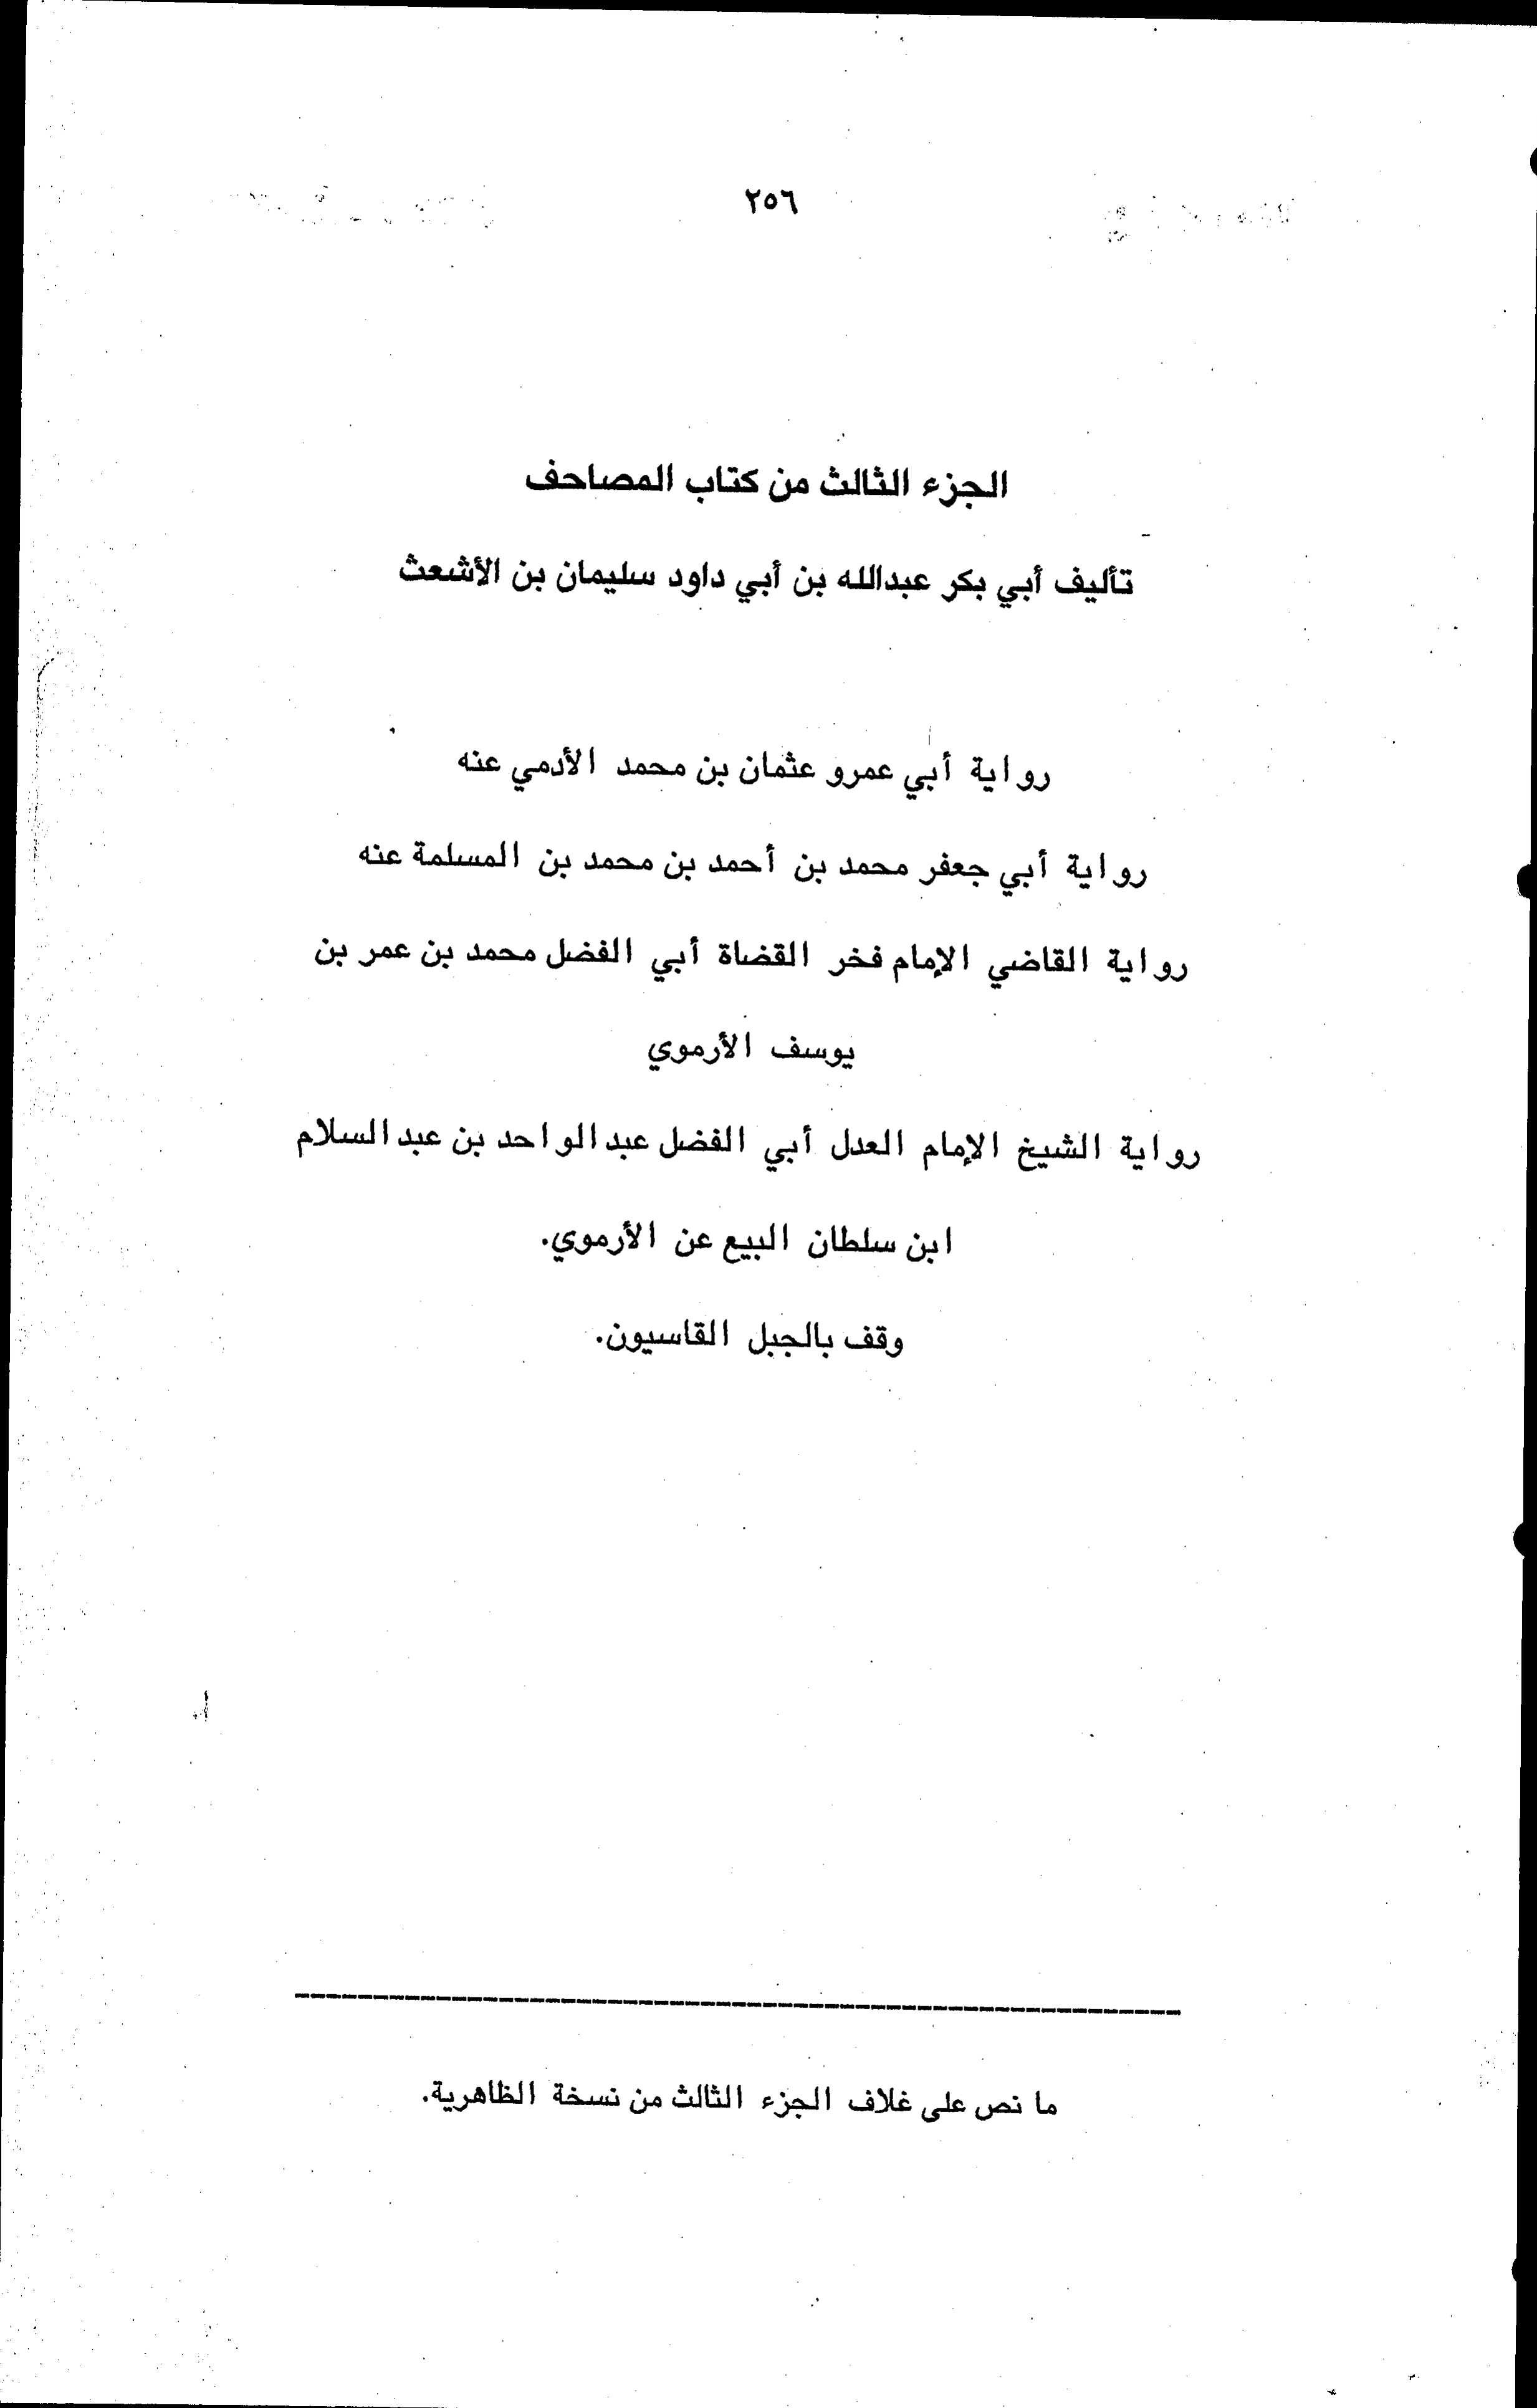 ٢٥٦
الجزء الثالث من كتاب المصاحف
تأليف أبي بكر عبدالله بن أبي داود سليمان بن الأشعث
رواية أبي عمرو عثمان بن محمد الأدمي عنه
رواية أبي جعفر محمد بن أحمد بن محمد بن المسلمة عنه
رواية القاضي الإمام فخر القضاة أبي الفضل محمد بن عمر بن
يوسف الأرموي
رواية الشيخ الإمام العدل أبي الفضل عبد الواحد بن عبد السلام
ابن سلطان البيع عن الأرموي.
وقف بالجبل القاسيون.
ما نص على غلاف الجزء الثالث من نسخة الظاهرية.